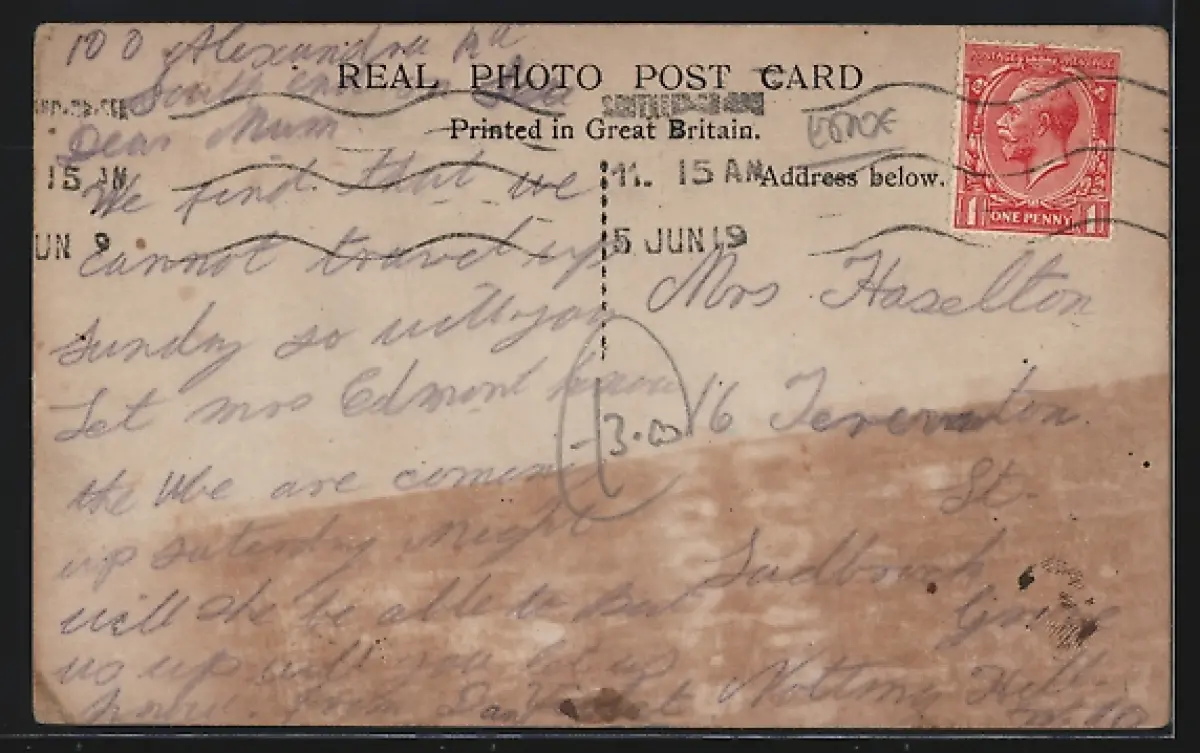 100 Alexandra Rd
South
Dear Mum
We find that we
cannot travel up
Sunday so will you
Let Mrs Edmont know
the We are coming
up Saterday Night
will she be able to put
us up will you let us
know. from
REAL PHOTO POST CARD
Printed in Great Britain.
Address below.
15 AM
UN 9
11. 15 AM
5 JUN 19
ONE PENNY
1 1
3.00
Mrs Haselton
16
St.
Ladbrook
Grove
Notting Hill.
W.10